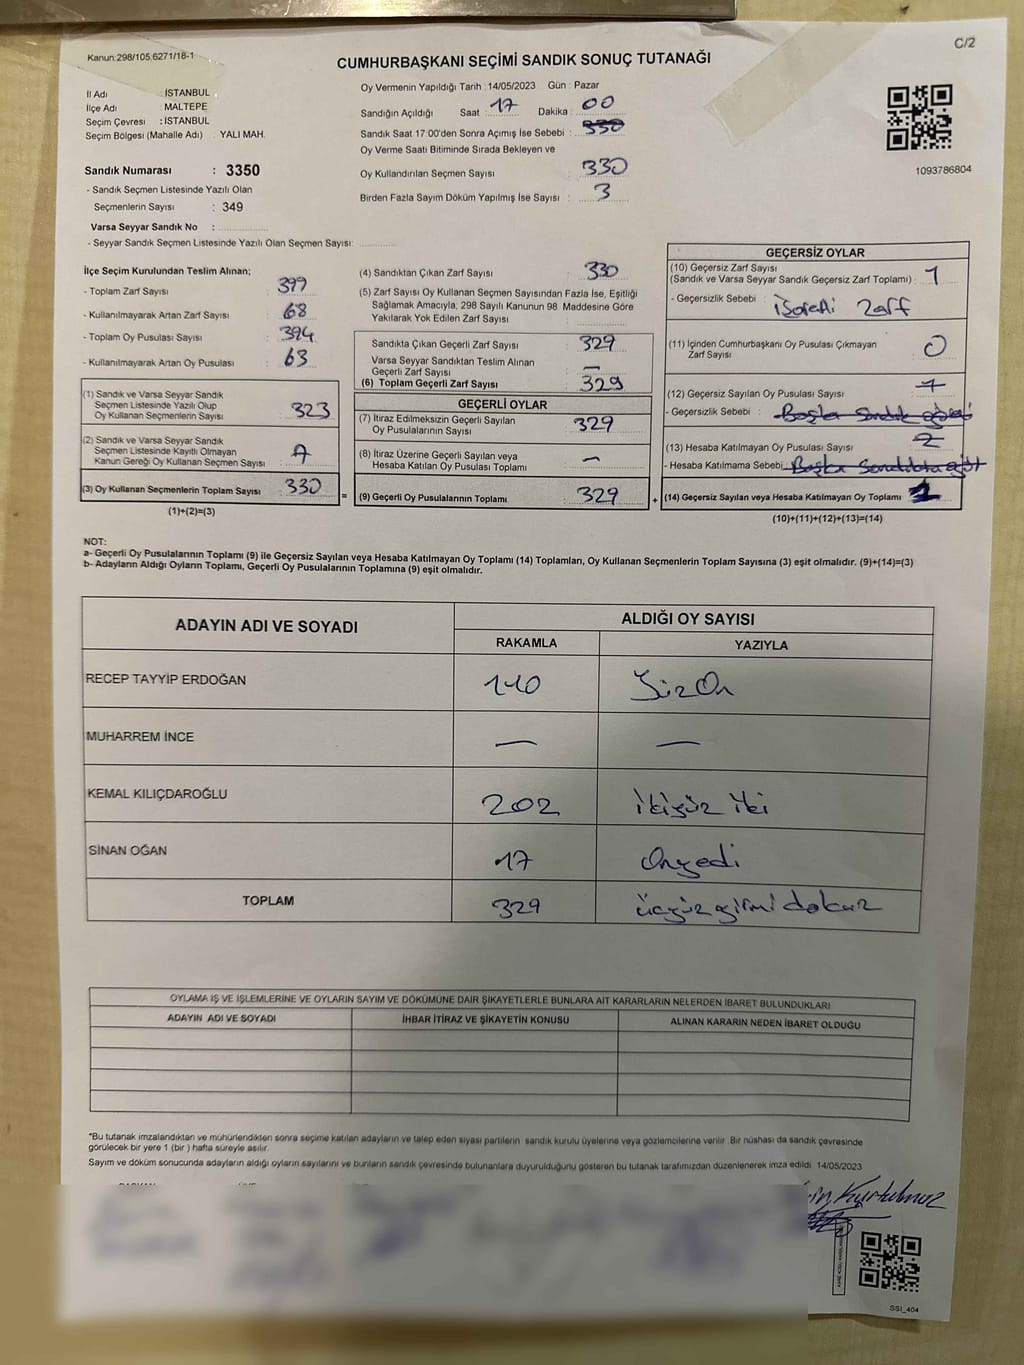 Kanun:298/105,6271/18-1
C/2
CUMHURBAŞKANI SEÇİMİ SANDIK SONUÇ TUTANAĞI
İl Adı : İSTANBUL
İlçe Adı : MALTEPE
Seçim Çevresi : İSTANBUL
Seçim Bölgesi (Mahalle Adı) : YALI MAH.
Oy Vermenin Yapıldığı Tarih :14/05/2023 Gün : Pazar
Sandığın Açıldığı Saat : 17 Dakika : 00
Sandık Saat 17:00'den Sonra Açımış İse Sebebi : 330
Oy Verme Saati Bitiminde Sırada Bekleyen ve
Oy Kullandırılan Seçmen Sayısı : 330
Birden Fazla Sayım Döküm Yapılmış İse Sayısı : 3
1093786804
Sandık Numarası : 3350
- Sandık Seçmen Listesinde Yazılı Olan
Seçmenlerin Sayısı : 349
Varsa Seyyar Sandık No :
- Seyyar Sandık Seçmen Listesinde Yazılı Olan Seçmen Sayısı:
İlçe Seçim Kurulundan Teslim Alınan;
- Toplam Zarf Sayısı : 399
- Kullanılmayarak Artan Zarf Sayısı : 68
- Toplam Oy Pusulası Sayısı : 394
- Kullanılmayarak Artan Oy Pusulası : 63
(1) Sandık ve Varsa Seyyar Sandık
Seçmen Listesinde Yazılı Olup
Oy Kullanan Seçmenlerin Sayısı : 323
(2) Sandık ve Varsa Seyyar Sandık
Seçmen Listesinde Kayıtlı Olmayan
Kanun Gereği Oy Kullanan Seçmen Sayısı : 7
(3) Oy Kullanan Seçmenlerin Toplam Sayısı : 330
(1)+(2)=(3)
(4) Sandıktan Çıkan Zarf Sayısı : 330
(5) Zarf Sayısı Oy Kullanan Seçmen Sayısından Fazla İse, Eşitliği
Sağlamak Amacıyla; 298 Sayılı Kanunun 98 Maddesine Göre
Yakılarak Yok Edilen Zarf Sayısı :
Sandıkta Çıkan Geçerli Zarf Sayısı : 329
Varsa Seyyar Sandıktan Teslim Alınan
Geçerli Zarf Sayısı : —
(6) Toplam Geçerli Zarf Sayısı : 329
GEÇERLİ OYLAR
(7) İtiraz Edilmeksizin Geçerli Sayılan
Oy Pusulalarının Sayısı : 329
(8) İtiraz Üzerine Geçerli Sayılan veya
Hesaba Katılan Oy Pusulası Toplamı : —
= (9) Geçerli Oy Pusulalarının Toplamı : 329 +
GEÇERSİZ OYLAR
(10) Geçersiz Zarf Sayısı
(Sandık ve Varsa Seyyar Sandık Geçersiz Zarf Toplamı) : 1
- Geçersizlik Sebebi : İşaretli Zarf
(11) İçinden Cumhurbaşkanı Oy Pusulası Çıkmayan
Zarf Sayısı : 0
(12) Geçersiz Sayılan Oy Pusulası Sayısı :
- Geçersizlik Sebebi : Başka Sandık
(13) Hesaba Katılmayan Oy Pusulası Sayısı : 2
- Hesaba Katılmama Sebebi : Başka
(14) Geçersiz Sayılan veya Hesaba Katılmayan Oy Toplamı : 1
(10)+(11)+(12)+(13)=(14)
NOT:
a- Geçerli Oy Pusulalarının Toplamı (9) ile Geçersiz Sayılan veya Hesaba Katılmayan Oy Toplamı (14) Toplamları, Oy Kullanan Seçmenlerin Toplam Sayısına (3) eşit olmalıdır. (9)+(14)=(3)
b- Adayların Aldığı Oyların Toplamı, Geçerli Oy Pusulalarının Toplamına (9) eşit olmalıdır.
ADAYIN ADI VE SOYADI
ALDIĞI OY SAYISI
RAKAMLA YAZIYLA
RECEP TAYYİP ERDOĞAN 110 Yüz On
MUHARREM İNCE — —
KEMAL KILIÇDAROĞLU 202 ikiyüz iki
SİNAN OĞAN 17 Onyedi
TOPLAM 329 üçyüzyirmidokuz
OYLAMA İŞ VE İŞLEMLERİNE VE OYLARIN SAYIM VE DÖKÜMÜNE DAİR ŞİKAYETLERLE BUNLARA AİT KARARLARIN NELERDEN İBARET BULUNDUKLARI
ADAYIN ADI VE SOYADI İHBAR İTİRAZ VE ŞİKAYETİN KONUSU ALINAN KARARIN NEDEN İBARET OLDUĞU
*Bu tutanak imzalandıktan ve mühürlendikten sonra seçime katılan adayların ve talep eden siyasi partilerin sandık kurulu üyelerine veya gözlemcilerine verilir. Bir nüshası da sandık çevresinde
görülecek bir yere 1 (bir ) hafta süreyle asılır.
Sayım ve döküm sonucunda adayların aldığı oyların sayılarını ve bunların sandık çevresinde bulunanlara duyurulduğunu gösteren bu tutanak tarafımızdan düzenlenerek imza edildi 14/05/2023
Kurtulmuz
SSI_404